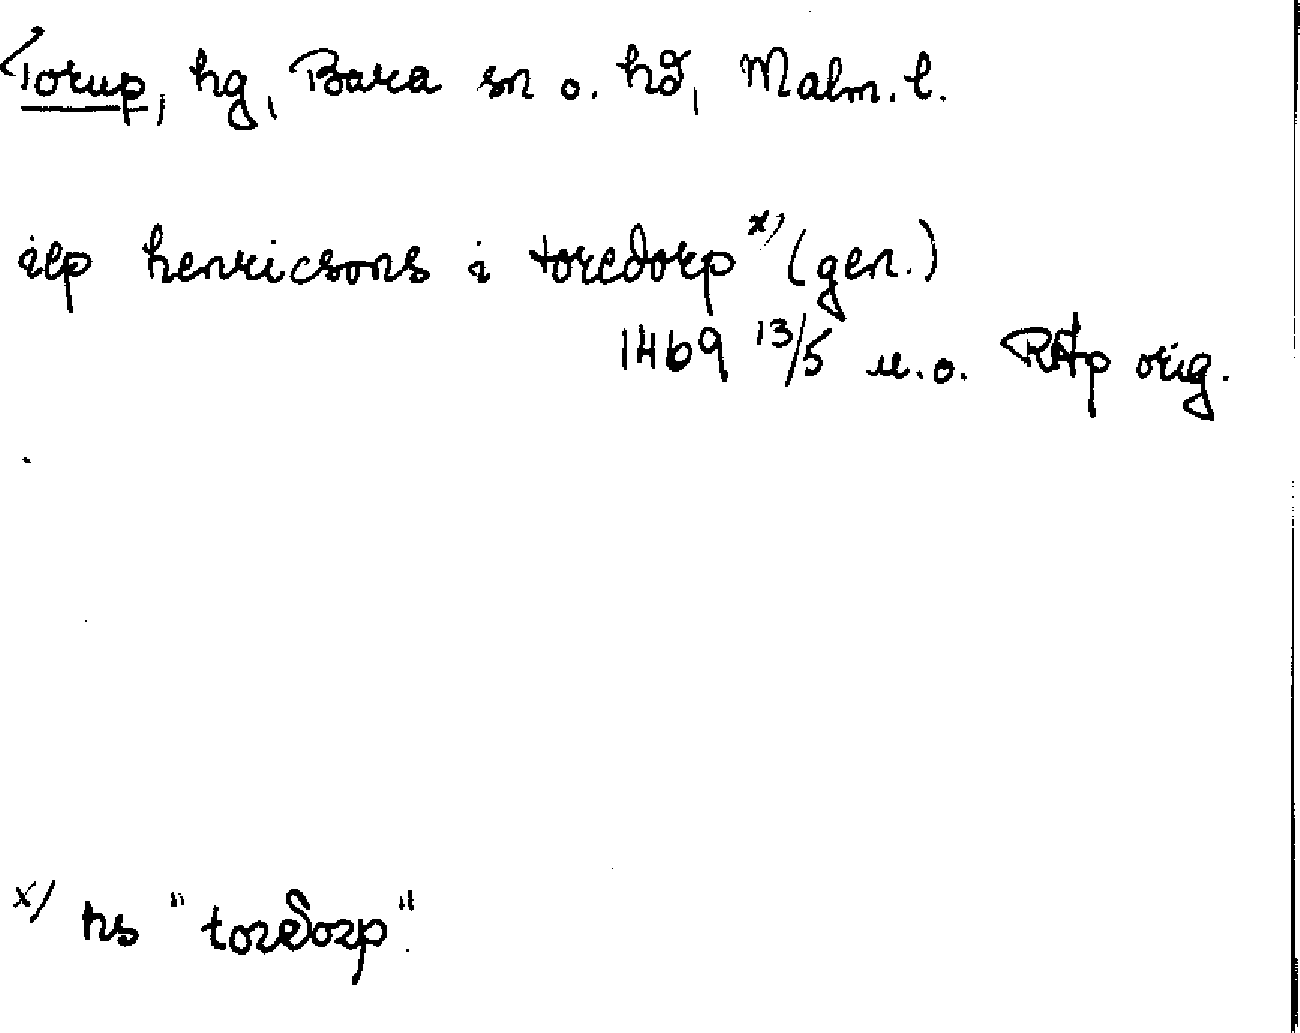 Torup, hg, Bara sn o. hd, Malm. l.
ilp henricsons i toredorp x) (gen.)
1469 13/5 u.o. RAp orig.
x) hs "toredorp".